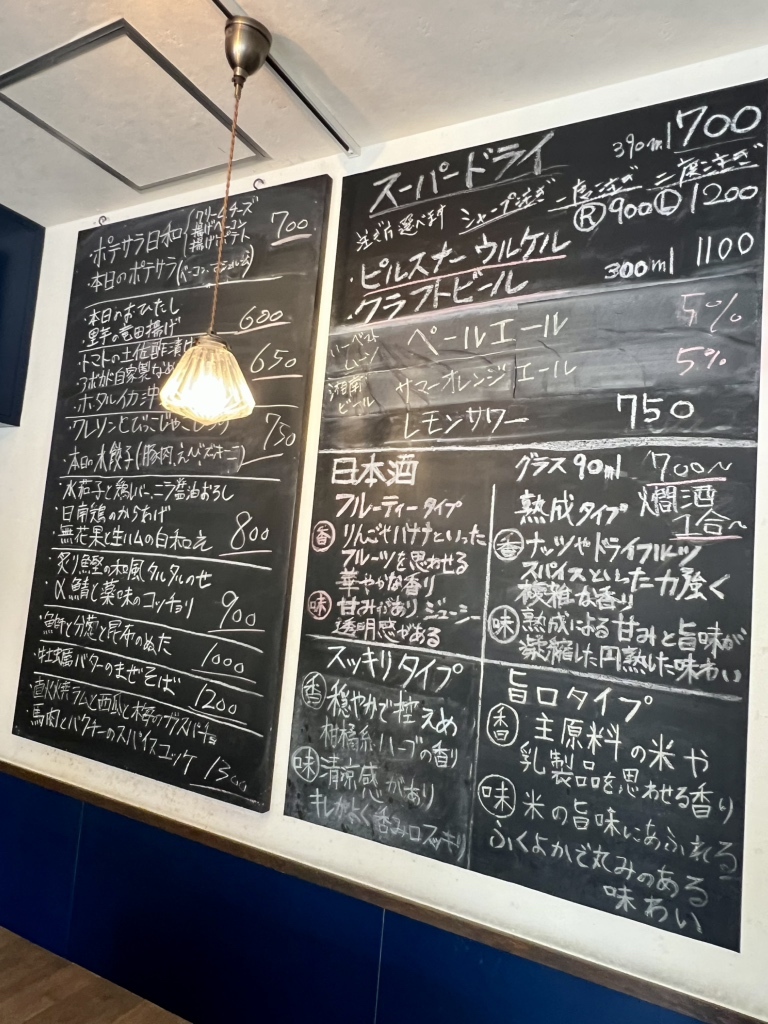 ・ポテサラ日和(クリームチーズ 揚げベーコン 揚げポテト 700
本日のポテサラ
・本日のおひたし
・里芋の竜田揚げ 600
・トマトの土佐酢漬け
自家製なめ 650
・ホタルイカ沖
750
・本日の水餃子(豚肉、えび、ズッキーニ)
水茄子と鶏レバー、ニラ醤油おろし
・日南鶏のからあげ
・無花果と生ハムの白和え 800
・炙り鰹の和風タルタルのせ
・α鯖と薬味のコッチョリ 900
・魚介と分葱と昆布のぬた 1000
・牡蠣バターのまぜそば 1200
・直火焼ラムと西瓜と
・馬肉とパクチーのスパイスユッケ 1300
スーパードライ 390ml 700
注ぎ方選べます シャープ注ぎ 一度注ぎ 二度注ぎ
・ピルスナーウルケル Ⓡ900 Ⓛ1200
・クラフトビール 300ml 1100
ハーベストムーン ペールエール 5%
湘南ビール サマーオレンジエール 5%
レモンサワー 750
日本酒 グラス90ml 700〜
燗酒 1合〜
フルーティータイプ
香 りんごやバナナといった
フルーツを思わせる
華やかな香り
味 甘みがあり ジューシー
透明感がある
熟成タイプ
香 ナッツやドライフルーツ
スパイスといった力強く
複雑な香り
味 熟成による甘みと旨味が
凝縮した円熟した味わい
スッキリタイプ
香 穏やかで控えめ
柑橘系ハーブの香り
味 清涼感があり
キレがよく呑み口スッキリ
旨口タイプ
香 主原料の米や
乳製品を思わせる香り
味 米の旨味にあふれる
ふくよかで丸みのある
味わい